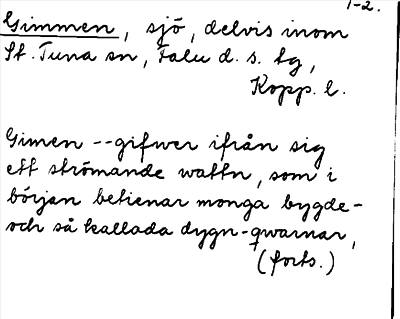 1-2.
Gimmen, sjö, delvis inom
St. Tuna sn, Falu d. s. tg,
Kopp. l.
Gimen -- gifwer ifrån sig
ett strömande wattn, som i
början betienar monga bygde-
och så kallada dygn-qwarnar,
(forts.)